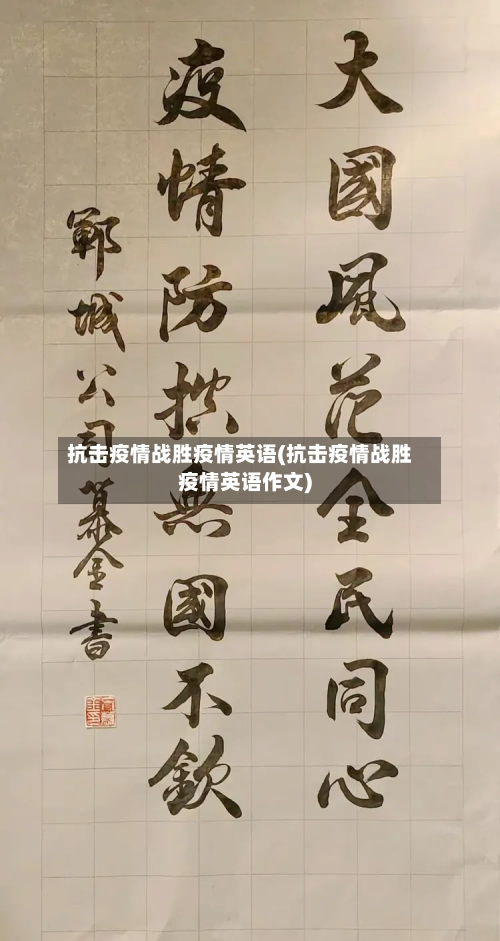 大國風范全民同心
疫情防控無國不欽
鄆城公司慕金書
抗击疫情战胜疫情英语(抗击疫情战胜
疫情英语作文)